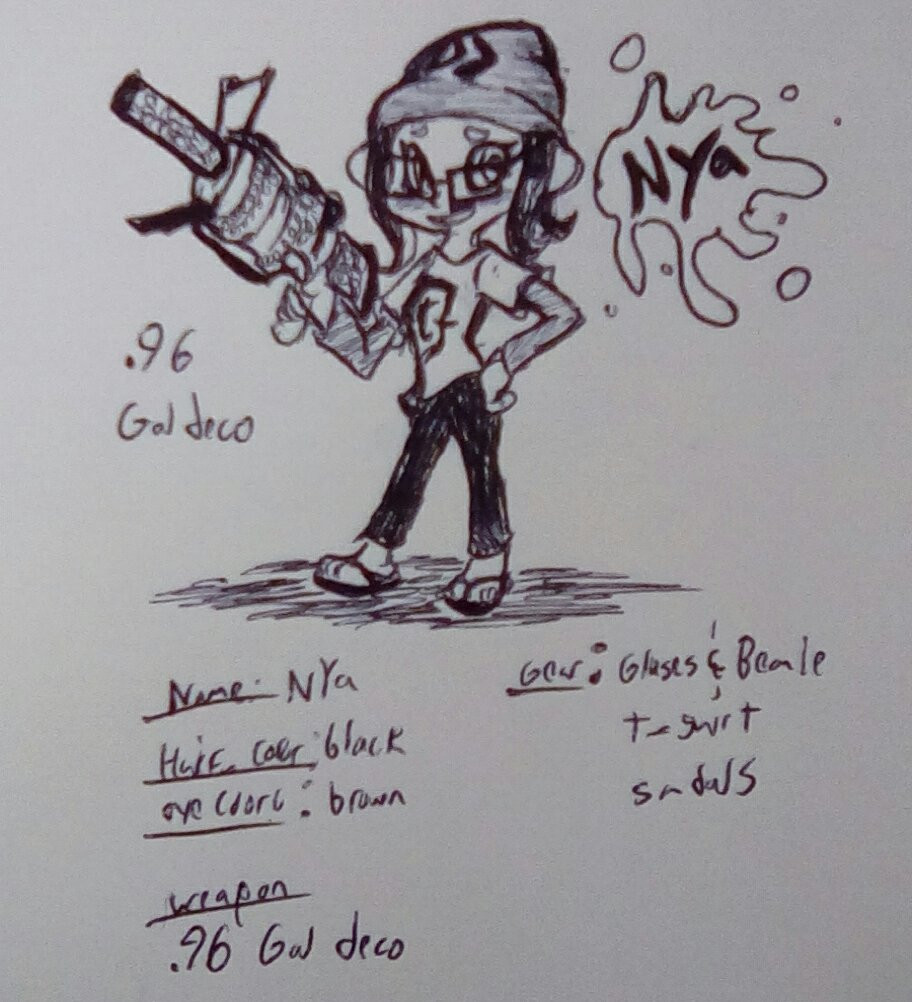 NYa
.96
Gal deco
Name: NYa
Hair color: black
eye Color: brown
weapon
.96 Gal deco
Gear: Glases & Beanie
T-shirt
sandals